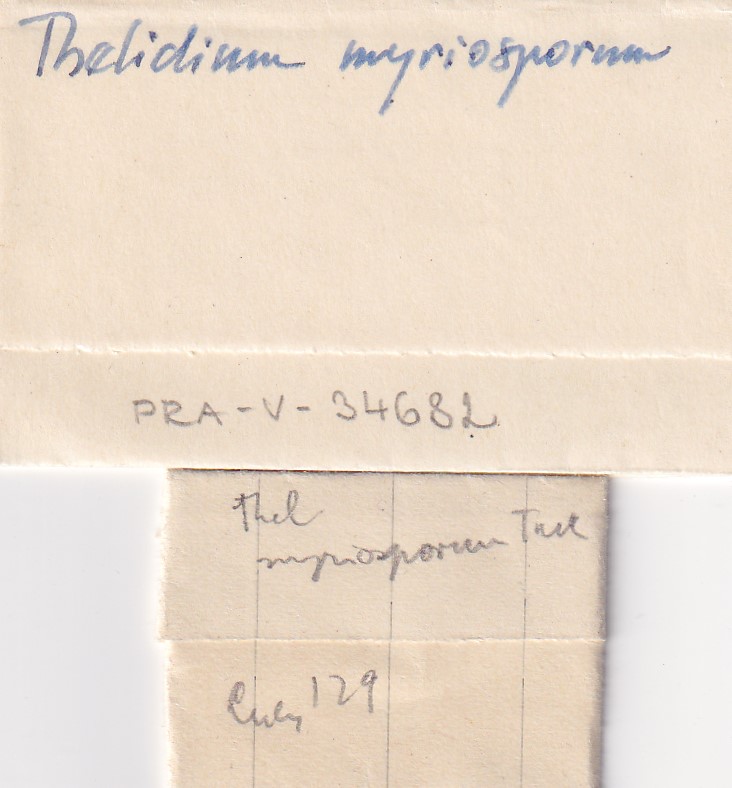 Thelidium myriosporum
PRA-V-34682
Thel
myriosporum Tuck
129